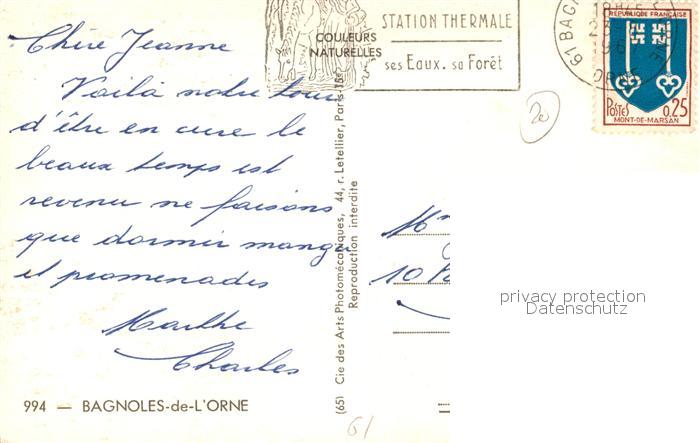 Chère Jeanne
Voilà notre tour
d'être en cure le
beaux temps est
revenu ne faisons
que dormir mange
et promenades
Marthe
Charles
994 — BAGNOLES-de-L'ORNE
COULEURS
NATURELLES
STATION THERMALE
ses Eaux. sa Forêt
(65) Cie des Arts Photomécaniques, 44, r. Letellier, Paris-15e
Reproduction interdite
20
61 BAGN
ORNE
RÉPUBLIQUE FRANÇAISE
POSTES 0,25
MONT-DE-MARSAN
10
privacy protection
Datenschutz
61